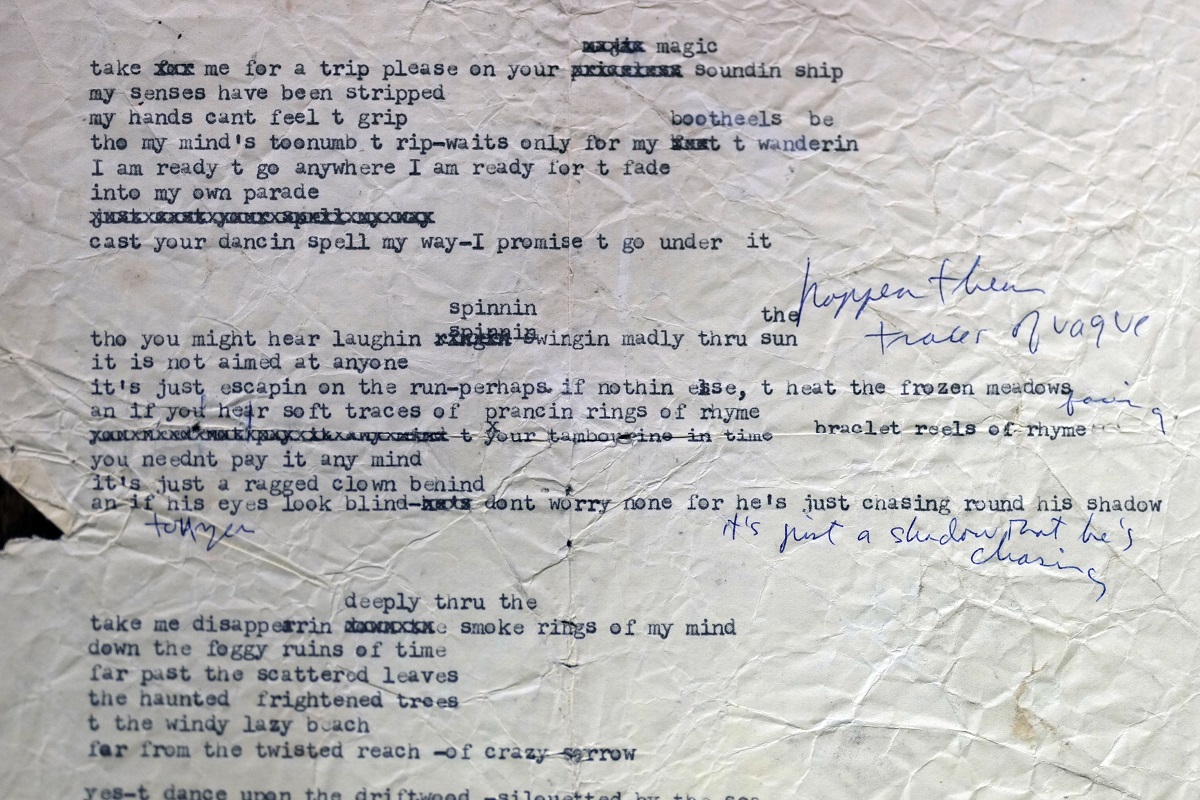 magic
take me for a trip please on your soundin ship
my senses have been stripped
my hands cant feel t grip
bootheels be
tho my mind's toonumb t rip-waits only for my t wanderin
I am ready t go anywhere I am ready for t fade
into my own parade
just cast your spell my way
cast your dancin spell my way-I promise t go under it
spinnin
the
traces of vague
spinnin
tho you might hear laughin swingin madly thru sun
it is not aimed at anyone
it's just escapin on the run-perhaps if nothin else, t heat the frozen meadows
an if you hear soft traces of prancin rings of rhyme
t your tambourine in time
braclet reels of rhyme
you neednt pay it any mind
it's just a ragged clown behind
an if his eyes look blind- dont worry none for he's just chasing round his shadow
it's just a shadow that he's
chasing
deeply thru the
take me disapperrin smoke rings of my mind
down the foggy ruins of time
far past the scattered leaves
the haunted frightened trees
t the windy lazy beach
far from the twisted reach -of crazy sorrow
yes-t dance upon the driftwood -silouetted by the sea